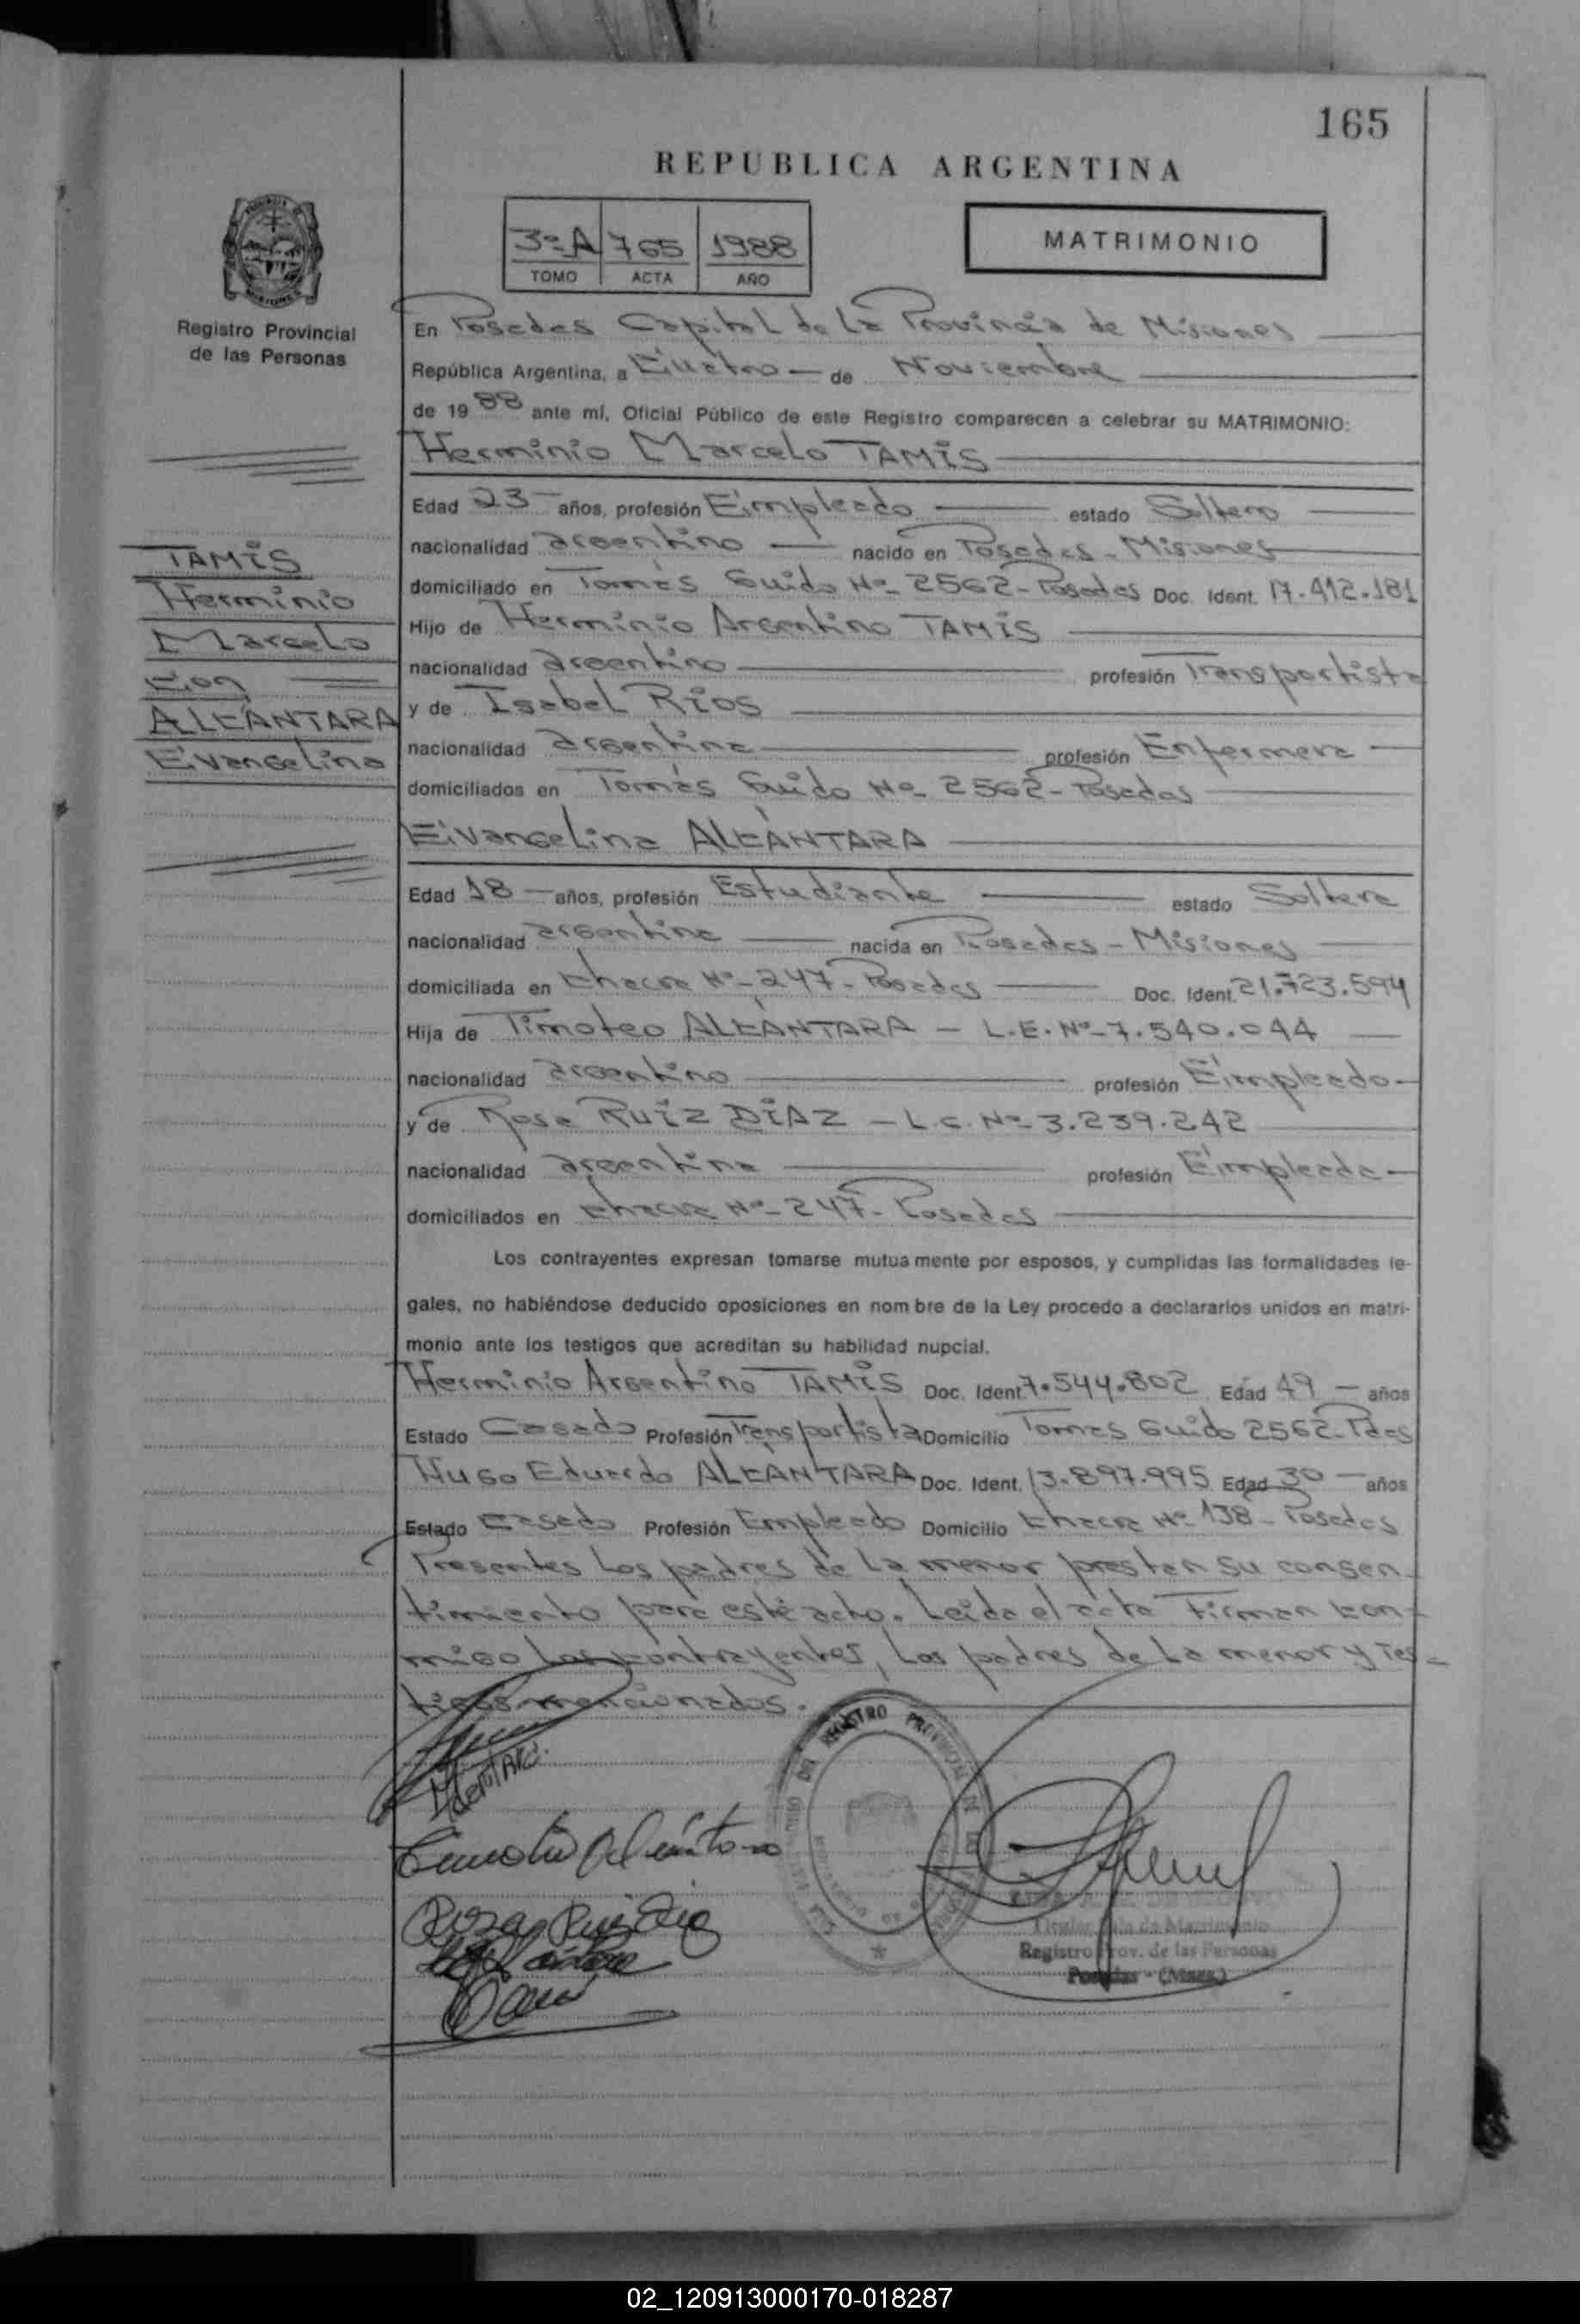 165
REPUBLICA ARGENTINA
3º A 765 1988
TOMO ACTA AÑO
MATRIMONIO
Registro Provincial
de las Personas
TAMIS
Herminio
Marcelo
con
ALCÁNTARA
Evangelina
En Posadas Capital de la Provincia de Misiones
República Argentina, a Cuatro de Noviembre
de 1988 ante mí, Oficial Público de este Registro comparecen a celebrar su MATRIMONIO:
Herminio Marcelo TAMIS
Edad 23 años, profesión Empleado estado Soltero
nacionalidad argentino nacido en Posadas - Misiones
domiciliado en Tomás Guido Nº 2562 - Posadas Doc. Ident. 17.412.181
Hijo de Herminio Argentino TAMIS
nacionalidad argentino profesión Transportista
y de Isabel RIOS
nacionalidad argentina profesión Enfermera
domiciliados en Tomás Guido Nº 2562 - Posadas
Evangelina ALCÁNTARA
Edad 18 años, profesión Estudiante estado Soltera
nacionalidad argentina nacida en Posadas - Misiones
domiciliada en Chacra Nº 247 - Posadas Doc. Ident. 21.723.594
Hija de Timoteo ALCÁNTARA - L.E. Nº 7.540.044
nacionalidad argentino profesión Empleado
y de Rosa RUIZ DIAZ - L.C. Nº 3.239.242
nacionalidad argentina profesión Empleada
domiciliados en Chacra Nº 247 - Posadas
Los contrayentes expresan tomarse mutua mente por esposos, y cumplidas las formalidades le-
gales, no habiéndose deducido oposiciones en nom bre de la Ley procedo a declararlos unidos en matri-
monio ante los testigos que acreditan su habilidad nupcial.
Herminio Argentino TAMIS Doc. Ident. 7.544.802 Edad 49 años
Estado Casado Profesión Transportista Domicilio Tomás Guido 2562 - Pdas
Hugo Eduardo ALCÁNTARA Doc. Ident. 13.897.995 Edad 30 años
Estado Casado Profesión Empleado Domicilio Chacra Nº 138 - Posadas
Presentes los padres de la menor prestan su consen-
timiento para este acto. Leída el acta firman con-
migo los contrayentes, los padres de la menor y tes-
tigos mencionados.
REGISTRO
Timoteo Alcántara
Rosa Ruiz Diaz
Titular Sala de Matrimonio
Registro Prov. de las Personas
Posadas - (Mnes.)
02_120913000170-018287